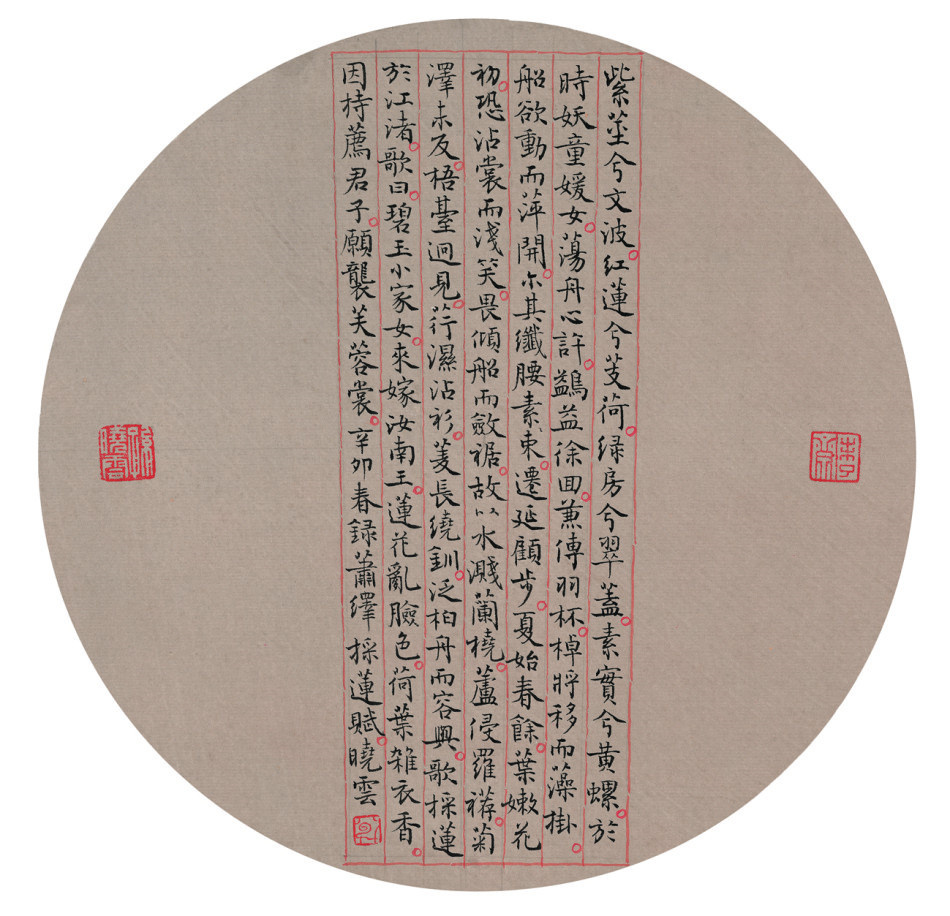 紫莖兮文波紅蓮兮芰荷绿房兮翠蓋素實兮黄螺於
時妖童媛女蕩舟心許鷁益徐囬兼傳羽杯棹將移而藻掛
船欲動而萍開尒其纖腰素束遷延顧步夏始春餘葉嫩花
初恐沾裳而淺笑畏傾船而斂裾故以水濺蘭橈蘆侵羅菊
澤未反梧臺迥見荇濕沾衫菱長繞釧泛柏舟而容興歌採蓮
於江渚歌曰碧玉小家女來嫁汝南王蓮花亂臉色荷葉雜衣香
因持薦君子願襲芙蓉裳辛卯春録蕭繹採蓮賦曉雲
孫曉雲